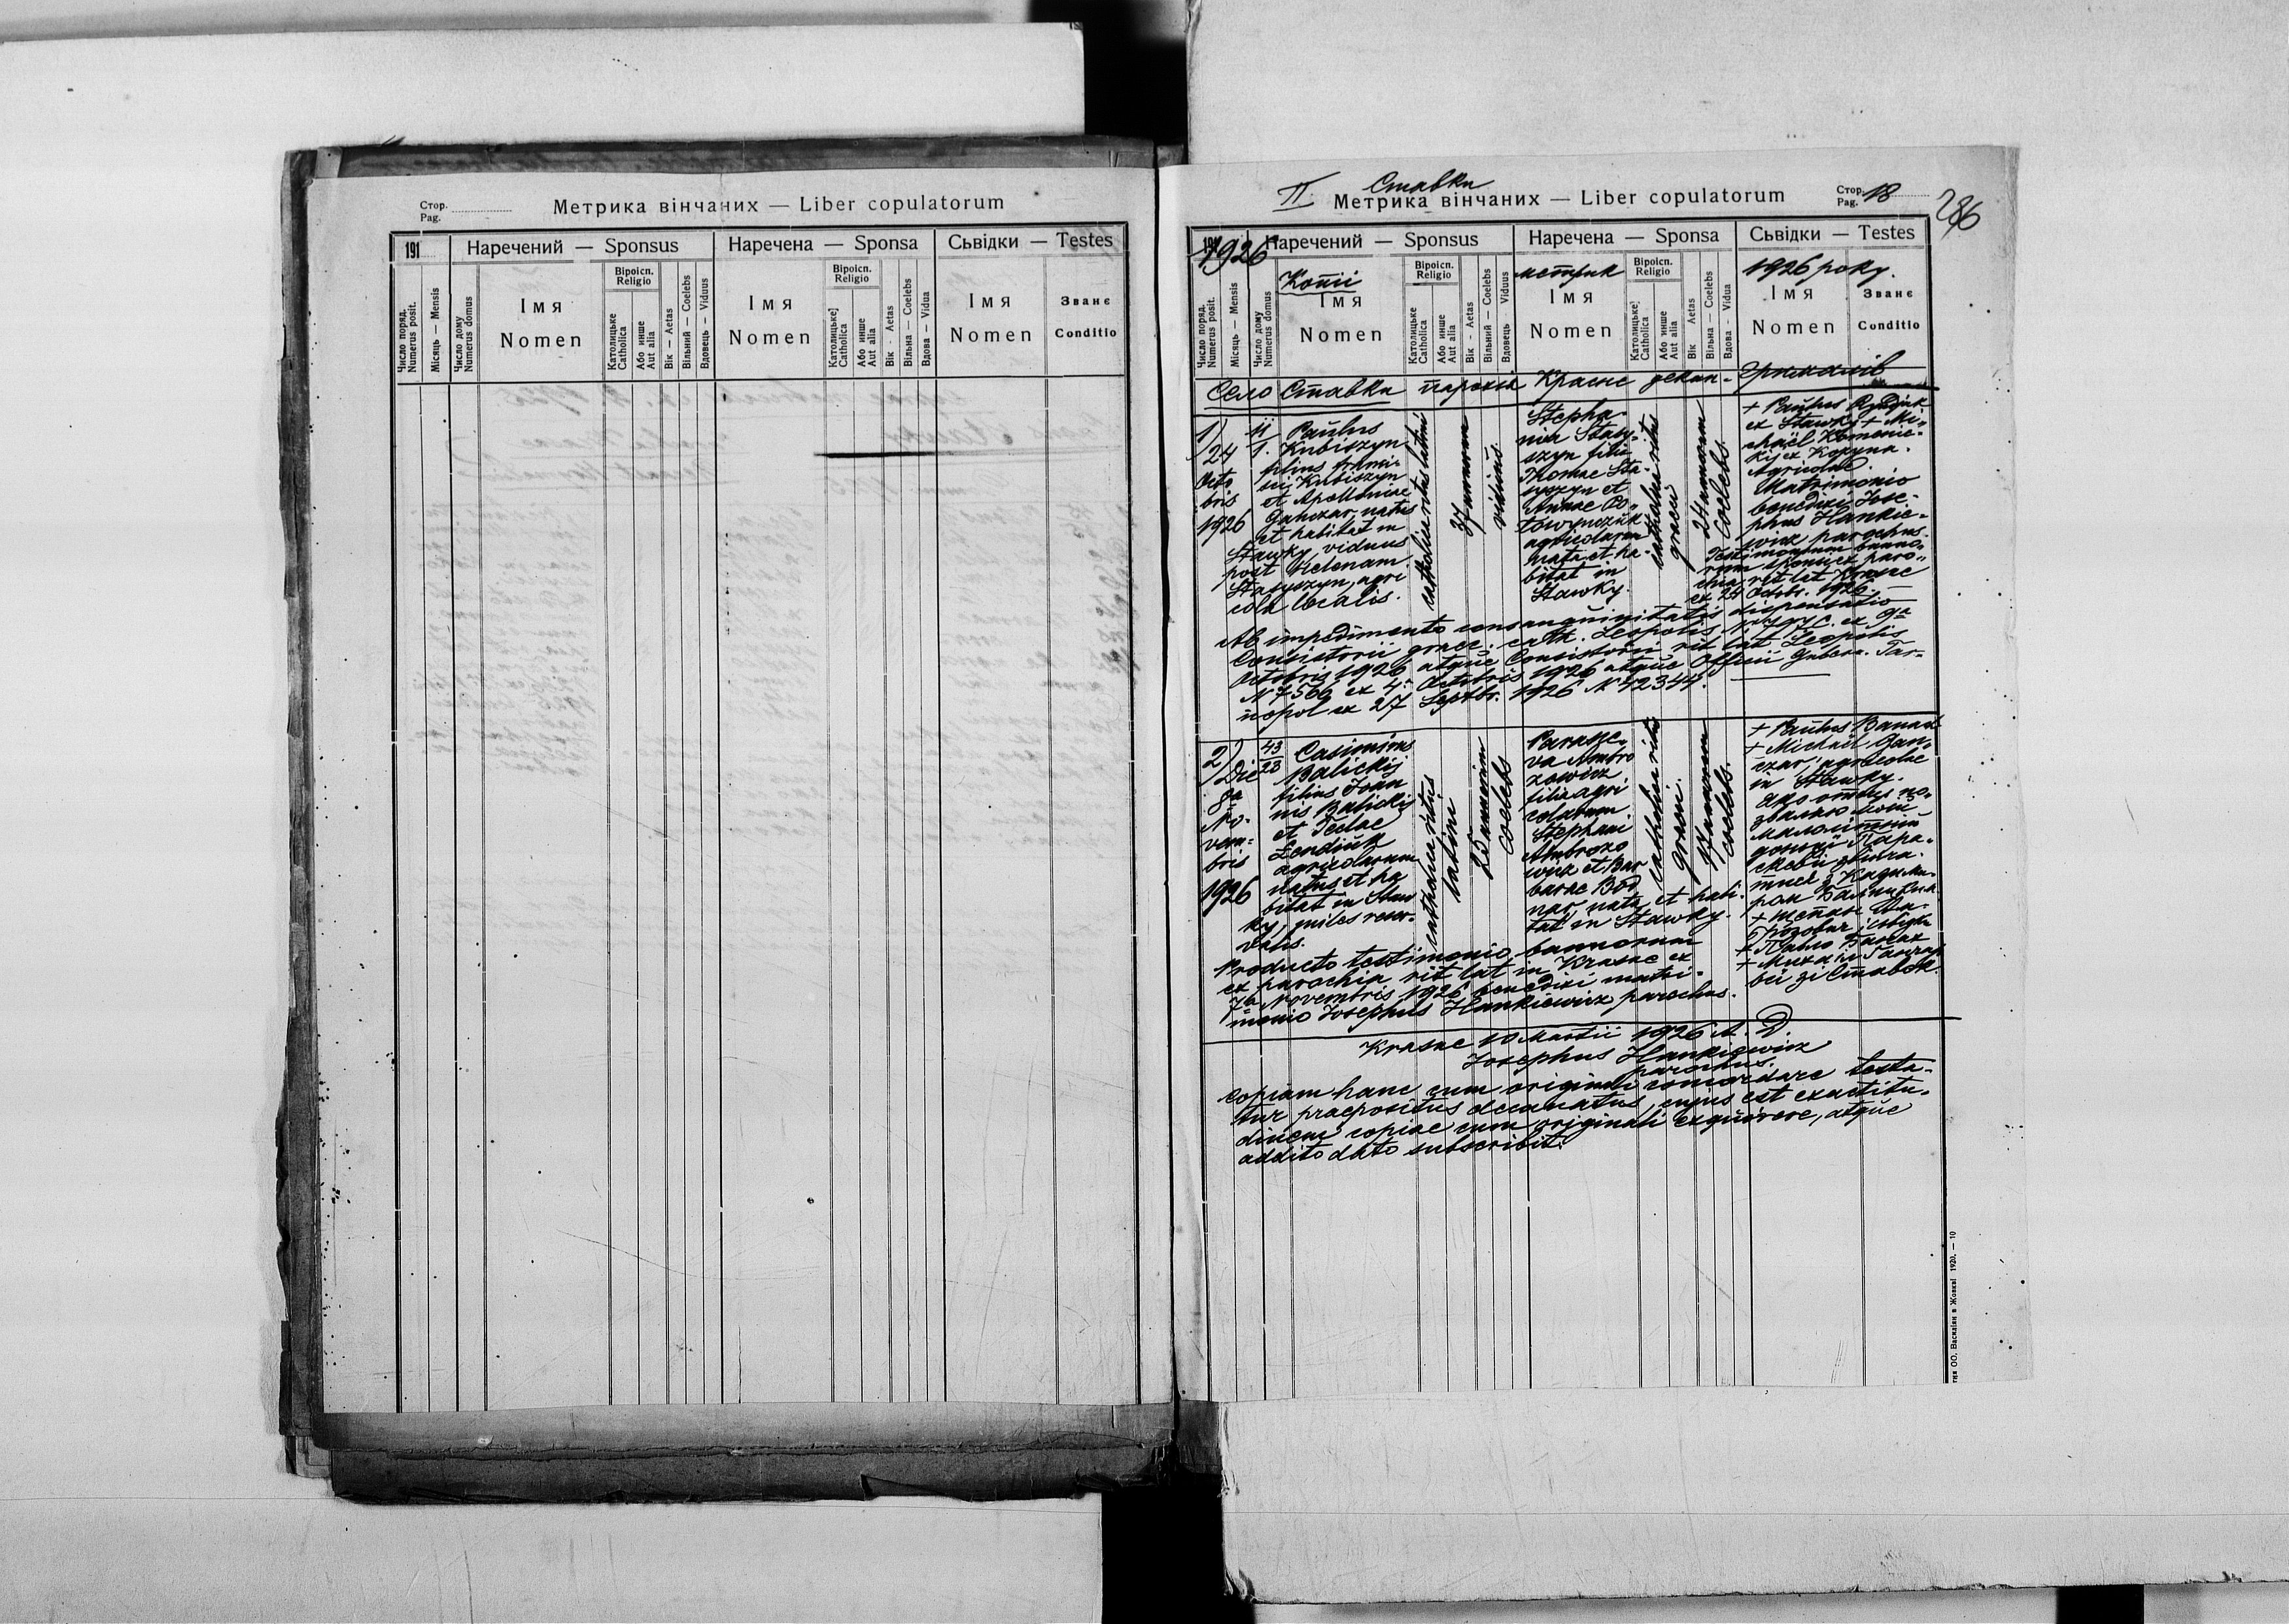 Стор.
Pag.
Метрика вінчаних — Liber copulatorum
191
Наречений — Sponsus
Наречена — Sponsa
Сьвідки — Testes
Число поряд.
Numerus posit.
Місяць — Mensis
Число дому
Numerus domus
Імя
Nomen
Віроісп.
Religio
Католицьке
Catholica
Або инше
Aut alia
Вік — Aetas
Вільний — Coelebs
Вдовець — Viduus
Імя
Nomen
Віроісп.
Religio
Католицьке]
Catholica
Або инше
Aut alia
Вік - Aetas
Вільна — Coelebs
Вдова — Vidua
Імя
Nomen
Званє
Conditio
II Ставки
Метрика вінчаних — Liber copulatorum
Стор.
Pag. 18
286
1926
Наречений — Sponsus
Наречена — Sponsa
Сьвідки — Testes
Число поряд.
Numerus posit.
Місяць — Mensis
Число дому
Numerus domus
Копії
Імя
Nomen
Віроісп.
Religio
Католицьке
Catholica
Або инше
Aut alia
Вік - Aetas
Вільний — Coelebs
Вдовець Viduus
метрик
Імя
Nomen
Віроісп.
Religio
Католицьке]
Catholica
Або инше
Aut alia
Вік Aetas
Вільна — Coelebs
Вдова - Vidua
1926 року.
Імя
Nomen
Званє
Conditio
Село Ставки парохія Красне декан. Грималів
1)
24
Octo
bris
1926
11
1.
Paulus
Kubiszyn
filius
Kubiszyn
et Apolloniae
Ganczar natus
et habitat in
Stawky viduus
post Helenam
Stasyszyn, agri
cola localis.
catholicus ritus latini
37 annorum
viduus.
Stepha-
nia Stasy-
szyn filia
Thomae Sta-
syszyn et
Annae
agricolarum
nata et ha-
bitat in
Stawky.
catholica ritus
graeci
24 annorum
coelebs.
+ Paulus
ex Stawky + Mi-
chaël
kij ex Kozyna.
Agricolae.
Matrimonio
benedixi Jose-
phus Hankie-
wicz parochus.
Testimonium banno-
rum ex paro-
chia rit lat Krasne
ex 24 Octobr. 1926.
Ab impedimento consanguinitatis dispensatio
Consistorii graec. cath. Leopolis N 797 C. ex 9a
Octobris 1926 atque Consistorii rit lat Leopolis
N 7566 ex 4. Octobris 1926 atque Officii Gubern. Tar-
nopol ex 27 Septbr. 1926 N 42344.
2)
Die
8a
No-
vem-
bris
1926
43
23
Casimirus
Balickij
filius Joan
nis Balickij
et Teclae
Lendiuk
agricolarum
natus et ha
bitat in Staw
ky, miles reser-
vatis.
catholicus ritus
latini
25 annorum
coelebs
Parasce-
va Ambro
zowicz
filia agri
colarum
Stephani
Ambrozo
wicz et Bar
barae Bod
nar nata et habi-
tat in Stawky.
catholica ritus
graeci.
17 annorum
coelebs.
+ Paulus Banach
+ Michaël Gan-
czar, agricolae
in Stawky.
Яко отець по-
зваляю моїй
малолітній
доньці Пара-
скевії вінча-
тися з Кадзими-
ром Балицким
+ Штефан Ам-
брозович і свідки
+ Павло Банах
+ Михаїл Ганчар
зі Ставок.
Producto testimonio bannorum
ex parochia rit lat in Krasne ex
7a Novembris 1926 benedixi matri-
monio Josephus Hankiewicz parochus.
Krasne 10 Martii 1926 A. D.
Josephus Hankiewicz
parochus.
Copiam hanc cum originali concordare testa-
tur praepositus decanatus, cujus est exactitu-
dinem copiae cum originali exquirere, atque
addito dato subscribit.
ОО. Василіян в Жовкві 1920. — 10